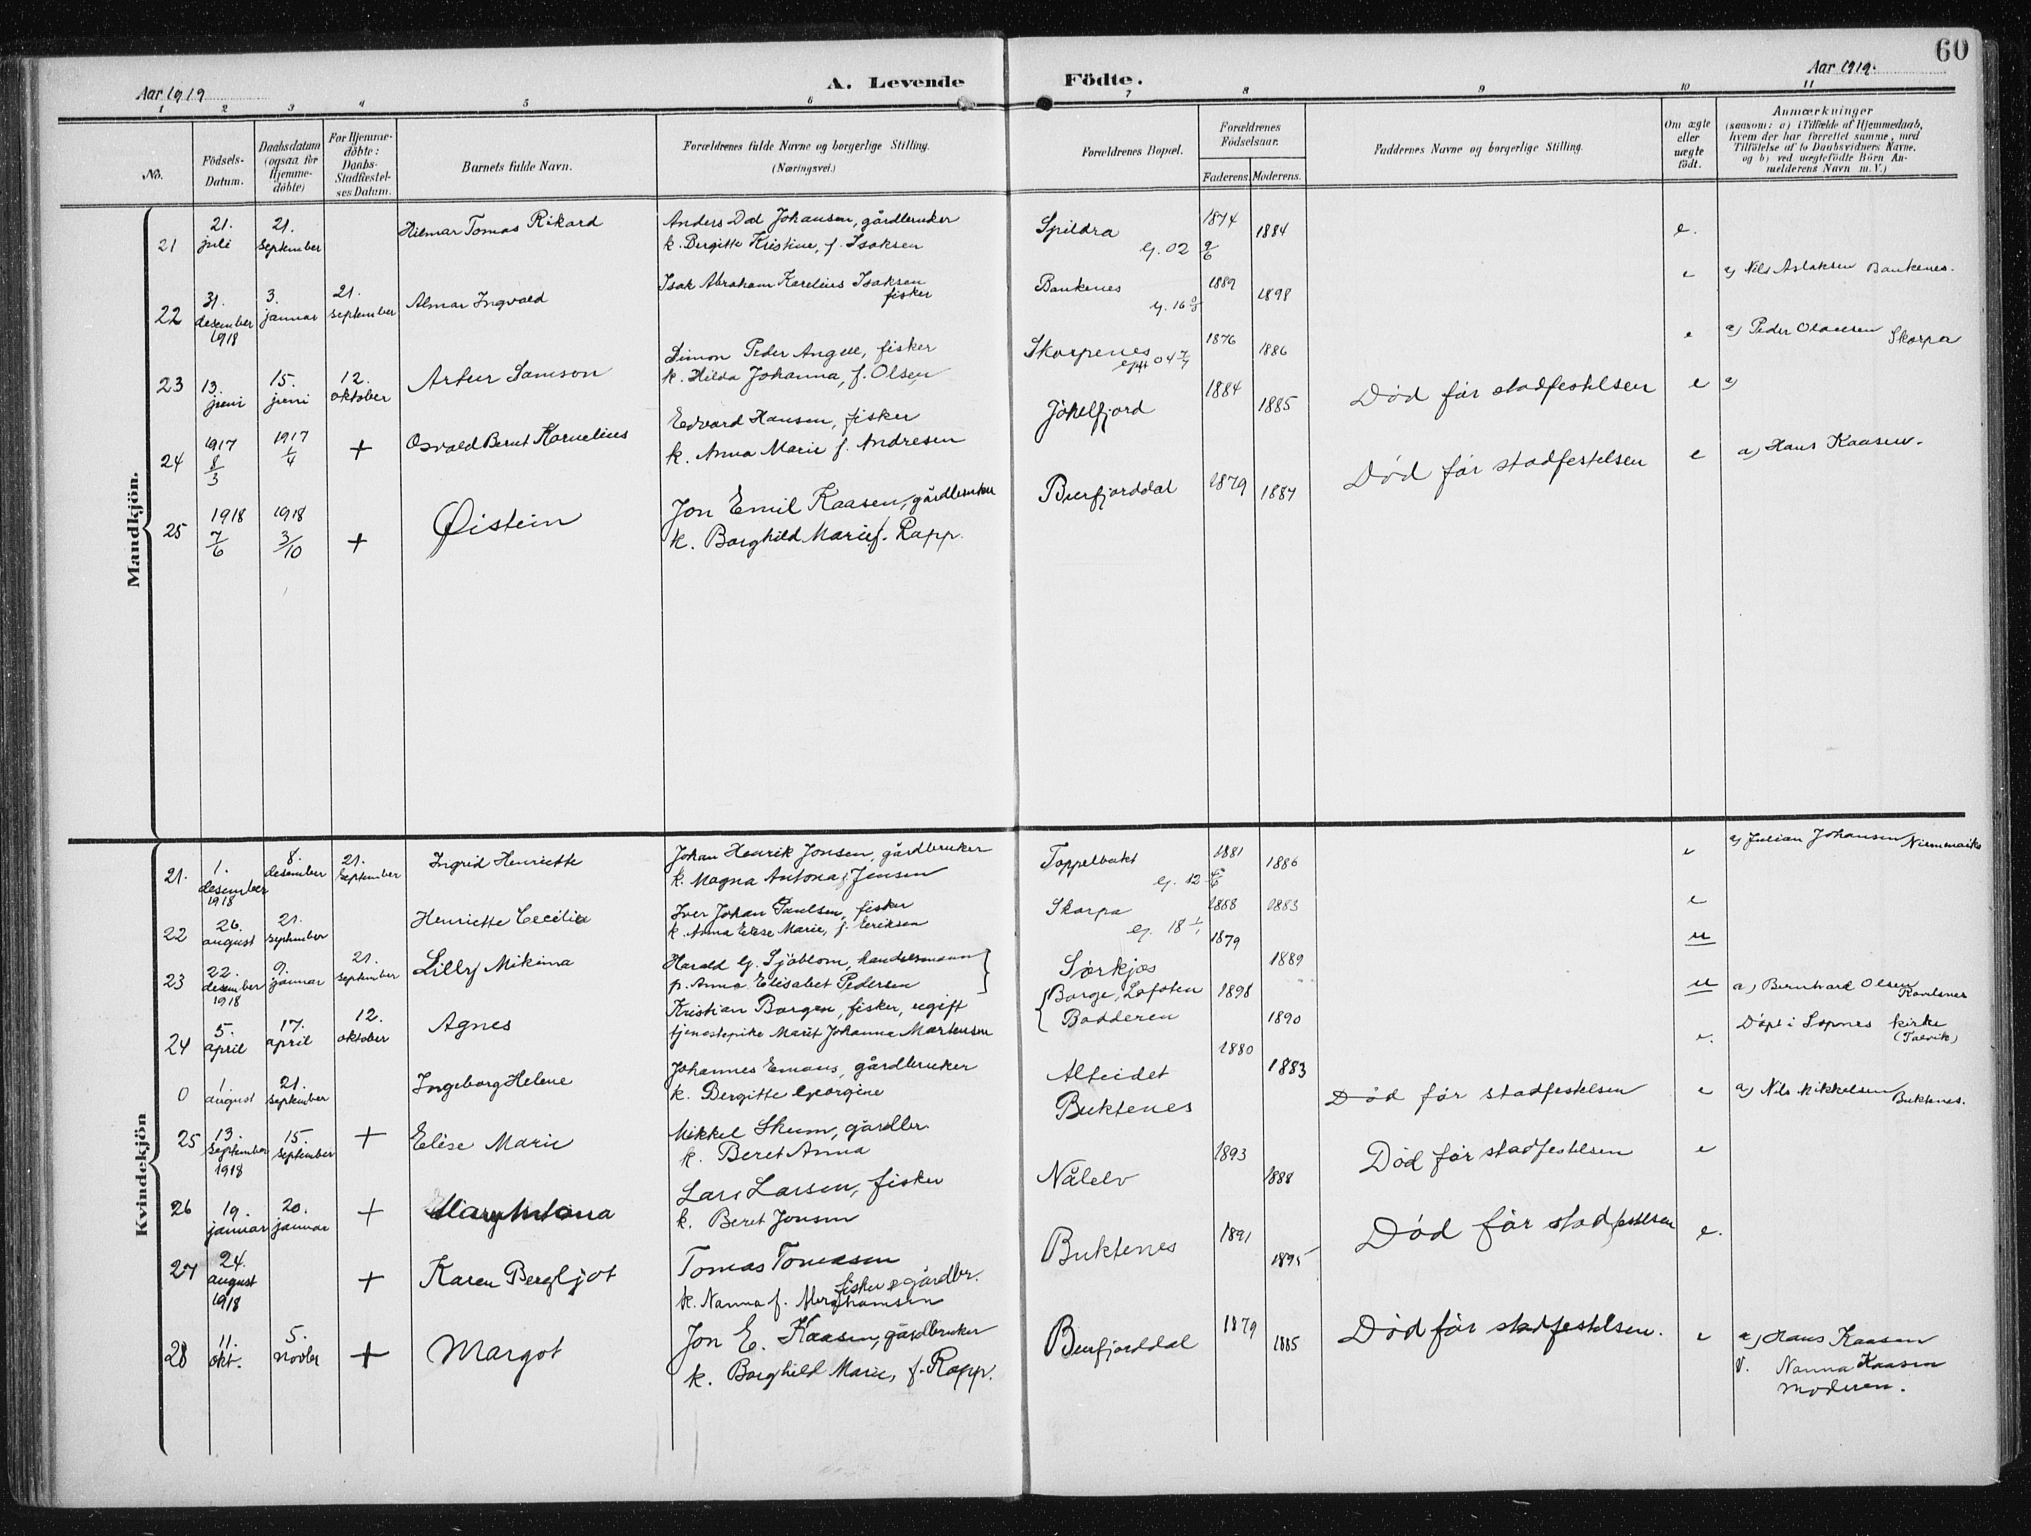 60
Aar 1919
A. Levende Födte.
Aar 1919.
1 2 3 4 5 6 7 8 9 10 11
No.
Födsels-Datum.
Daabsdatum (ogsaa for Hjemme-döbte)
For Hjemme-döbte: Daabs-Stadfæstel-ses Datum.
Barnets fulde Navn.
Forældrenes fulde Navne og borgerlige Stilling.
(Næringsvei.)
Forældrenes Bopæl.
Forældrenes Födselsaar.
Faderens. Moderens.
Faddernes Navne og borgerlige Stilling.
Om ægte eller uægte födt.
Anmærkninger
(saasom: a) i Tilfælde af Hjemmedaab, hvem der har forrettet samme, med Tilföielse af to Daabsvidners Navne. og b) ved uægtefödte Börn An-melderens Navn m. V.)
Mandkjön.
21 21. juli 21. september Hilmar Tomas Rikard
Anders Dal Johansen, gårdbruker
k. Bergitte Kristine, f. Isaksen
Spildra g. 02 9/6 1874 1884 e.
22 31. desember 1918 3. januar 21. september Almar Ingvald
Isak Abraham Karelius Isaksen
fisker
Bankenes 1889 1898 e a) Nils Aslaksen Bankenes.
23 13. juni 15. juni 12. oktober Artur Samson
Simon Peder Angell, fisker
k. Hilda Johanna, f. Olsen
Skorpenes 04 7/7 1876 1886 e a) Peder Olaussen Skorpa
24 1917 8/3 1917 1/4 + Osvald Bernt Kornelius
Edvard Hansen, fisker
k. Anna Marie f. Andresen
Jökelfjord 1884 1885 Död før stadfestelsen e a)
25 1918 7/6 1918 3/10 + Øistein
Jon Emil Kaasen, gårdbruker
k. Borghild Marie f. Rapp.
Burfjorddal 1879 1884 Död før stadfestelsen e a) Hans Kaasen.
Kvindekjön
21. 1. desember 1918 8. desember 21. september Ingrid Henriette
Johan Henrik Jonsen, gårdbruker
k. Magna Antona f. Jensen
Toppelbukt g. 12 1881 1886 e a) Julian Johansen
22 26. august 21. september Henriette Cecilie
Iver Johan Paulsen, fisker
k. Anna Elise Marie, f. Eriksen
Skorpa g. 18 1/1 1888 1883 e
23 22. desember 1918 9. januar 21. september Lilly Mikina
Harald G. Sjöblom, handelsmann
p. Anna Elisabet Pedersen
Sørkjos 1879 1889 u
24 5. april 17. april 12. oktober Agnes
Kristian Borgen, fisker, ugift
tjenestepike Marit Johanna Mortensen
Borge, Lofoten
Badderen 1898 1890 u a) Bernhard Olsen
0 1 august 21. september Ingeborg Helene
Johannes Emaus, gårdbruker
k. Bergitte Georgine
Alteidet 1880 1883 e. Døpt i Sopnes kirke
(Talvik)
25 13. september 1918 15. september + Elise Marie
Mikkel Skum, gårdbr.
k. Beret Anna
Buktenes Död før stadfestelsen e a) Nils Mikkelsen Buktenes.
26 19. januar 20. januar + Mary Antona
Lars Larsen, fisker
k. Beret Jonsen
Nålelv 1893 1888 Död før stadfestelsen e
27 24. august 1918 + Karen Bergljot
Tomas Tomasen
fisker & gårdbr.
k. Nanna f.
Buktenes 1891 1895 Död før stadfestelsen e.
28 11. okt. 5. novbr + Margot
Jon E. Kaasen, gårdbruker
k. Borghild Marie, f. Rapp.
Burfjorddal 1879 1885 Död før stadfestelsen. e a) Hans Kaasen
V. Nanna Kaasen
Moderen.